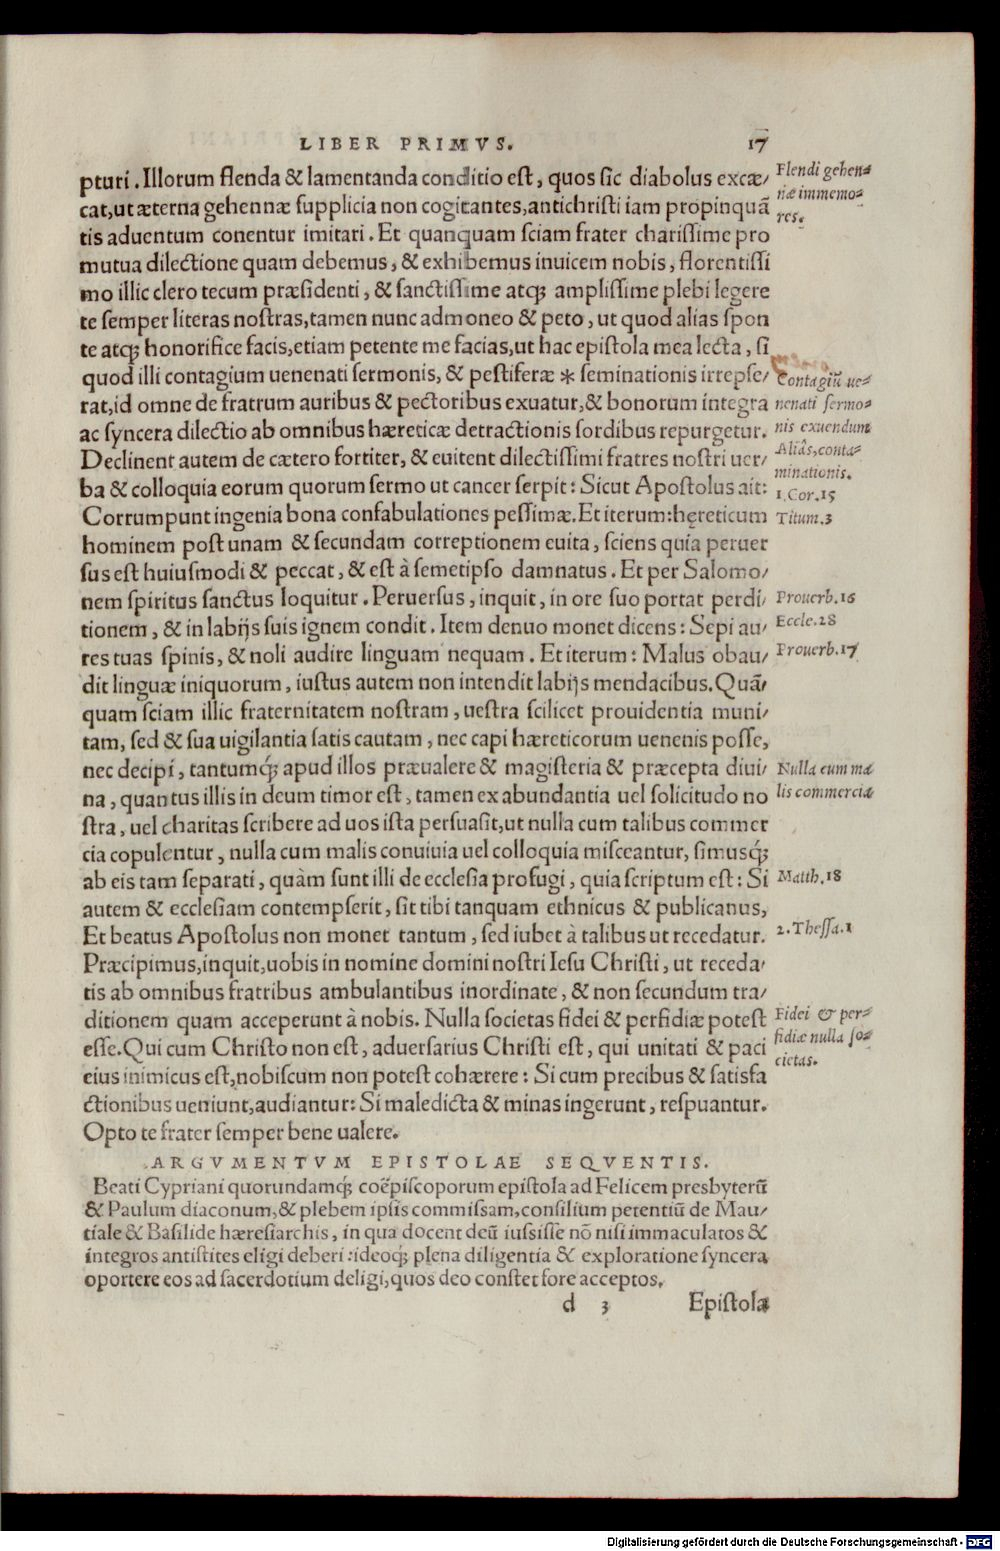 LIBER PRIMVS. 17
pturi. Illorum flenda & lamentanda conditio est, quos sic diabolus excæ/
cat, ut æterna gehennæ supplicia non cogitantes, antichristi iam propinquā
tis aduentum conentur imitari. Et quanquam sciam frater charissime pro
mutua dilectione quam debemus, & exhibemus inuicem nobis, florentissi
mo illic clero tecum præsidenti, & sanctissime atq; amplissime plebi legere
te semper literas nostras, tamen nunc admoneo & peto, ut quod alias spon
te atq; honorifice facis, etiam petente me facias, ut hac epistola mea lecta, si
quod illi contagium uenenati sermonis, & pestiferæ * seminationis irrepse/
rat, id omne de fratrum auribus & pectoribus exuatur, & bonorum integra
ac syncera dilectio ab omnibus hæreticæ detractionis sordibus repurgetur.
Declinent autem de cætero fortiter, & euitent dilectissimi fratres nostri uer/
ba & colloquia eorum quorum sermo ut cancer serpit: Sicut Apostolus ait:
Corrumpunt ingenia bona confabulationes pessimæ. Et iterum: hęreticum
hominem post unam & secundam correptionem euita, sciens quia peruer
sus est huiusmodi & peccat, & est à semetipso damnatus. Et per Salomo/
nem spiritus sanctus loquitur. Peruersus, inquit, in ore suo portat perdi/
tionem, & in labijs suis ignem condit. Item denuo monet dicens: Sepi au/
res tuas spinis, & noli audire linguam nequam. Et iterum: Malus obau/
dit linguæ iniquorum, iustus autem non intendit labijs mendacibus. Quā/
quam sciam illic fraternitatem nostram, uestra scilicet prouidentia muni/
tam, sed & sua uigilantia satis cautam, nec capi hæreticorum uenenis posse,
nec decipi, tantumq́; apud illos præualere & magisteria & præcepta diui/
na, quantus illis in deum timor est, tamen ex abundantia uel solicitudo no
stra, uel charitas scribere ad uos ista persuasit, ut nulla cum talibus commer
cia copulentur, nulla cum malis conuiuia uel colloquia misceantur, simusq́;
ab eis tam separati, quàm sunt illi de ecclesia profugi, quia scriptum est: Si
autem & ecclesiam contempserit, sit tibi tanquam ethnicus & publicanus,
Et beatus Apostolus non monet tantum, sed iubet à talibus ut recedatur.
Præcipimus, inquit, uobis in nomine domini nostri Iesu Christi, ut receda/
tis ab omnibus fratribus ambulantibus inordinate, & non secundum tra/
ditionem quam acceperunt à nobis. Nulla societas fidei & perfidiæ potest
esse. Qui cum Christo non est, aduersarius Christi est, qui unitati & paci
eius inimicus est, nobiscum non potest cohærere: Si cum precibus & satisfa
ctionibus ueniunt, audiantur: Si maledicta & minas ingerunt, respuantur.
Opto te frater semper bene ualere.
ARGVMENTVM EPISTOLAE SEQVENTIS.
Beati Cypriani quorundamq́; coëpiscoporum epistola ad Felicem presbyterū
& Paulum diaconum, & plebem ipsis commissam, consilium petentiū de Mar/
tiale & Basilide hæresiarchis, in qua docent deū iussisse nō nisi immaculatos &
integros antistites eligi deberi: ideoq́; plena diligentia & exploratione syncera
oportere eos ad sacerdotium deligi, quos deo constet fore acceptos.
d 3 Epistola
Flendi gehen=
næ immemo=
res.
Contagiū ue=
nenati sermo=
nis exuendum
Aliâs, conta=
minationis.
1. Cor. 15
Titum. 3
Prouerb. 16
Eccle. 28
Prouerb. 17
Nulla cum ma
lis commercia
Matth. 18
2. Thess. 1
Fidei & per=
fidiæ nulla so=
cietas.
Digitalisierung gefördert durch die Deutsche Forschungsgemeinschaft - DFG